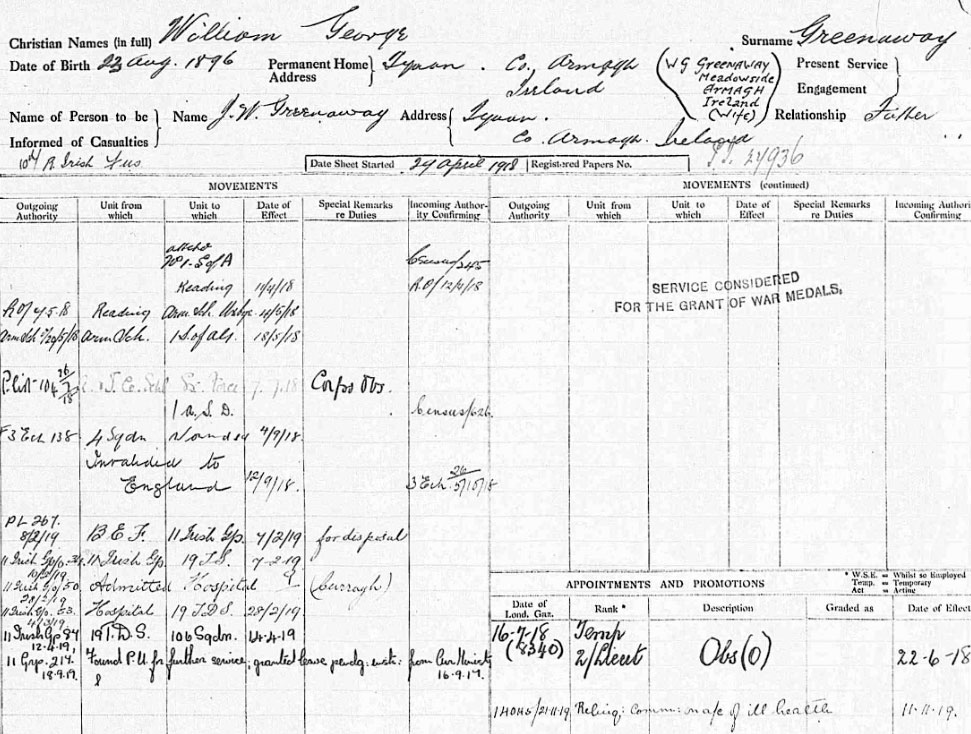 Christian Names (in full) William George
Surname Greenaway
Date of Birth 23 Aug. 1896
Permanent Home Address } Tynan. Co. Armagh
Ireland
(W G GREENAWAY
Meadowside
ARMAGH
Ireland
(Wife))
Present Service Engagement }
Name of Person to be Informed of Casualties } Name J. W. Greenaway Address { Tynan.
Co. Armagh. Ireland
Relationship Father
10th R. Irish Fus.
Date Sheet Started 24 April 1918 Registered Papers No. 24936
MOVEMENTS
MOVEMENTS (continued)
Outgoing Authority Unit from which Unit to which Date of Effect Special Remarks re Duties Incoming Authority Confirming
Outgoing Authority Unit from which Unit to which Date of Effect Special Remarks re Duties Incoming Authori Confirming
attchd
No 1. S of A Census/245
Reading 1/4/18 RO/12/4/18
RO/4.5.18 Reading Arm. Sch. Uxbge 14/5/18
Arm Sch 2/20/5/18 Arm Sch. 1 S. of A. 18/5/18
P. List 104 26/7/18 Ex. Force 7.7.18 Corps Obs.
1 A. S. D. Census/626
3 Ech 138 4 Sqdn Wounded 4/9/18.
Invalided to
England 12/9/18. 3 Ech. 26 5/10/18
PL 267.
8/2/19 B E F. 11 Irish Gp. 7/2/19 for disposal
11 Irish Gp/o. 11 Irish Gp. 19 T.S. 7-2-19
10/2/19
11 Irish G/o/50 Admitted Hospital (Curragh)
11 Irish Gp. 53. Hospital 19 T D S. 28/2/19
4/3/19
11 Irish Gp 84 19 T. D. S. 106 Sqdn. 14.4.19
12.4.19,
11 Grp. 214. Found P.U. for further service; granted leave pendg. inst: from Air Ministry
18.9.19. 16.9.19.
SERVICE CONSIDERED
FOR THE GRANT OF WAR MEDALS.
* W.S.E. = Whilst so Employed
Temp. = Temporary
Act = Acting
APPOINTMENTS AND PROMOTIONS
Date of Lond. Gaz. Rank * Description Graded as Date of Effect
16-7-18 Temp
(8340) 2/Lieut Obs (O) 22-6-18
/21-11-19 Relinq: Comm: on a/c of ill health 11-11-19.